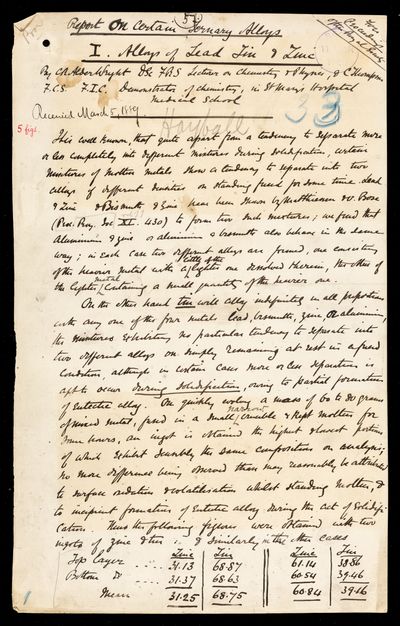 (57)
Report On Certain Ternary Alloys
I. Alloys of Lead Tin & Zinc
By C.R. Alder Wright DSc F.R.S Lecturer on Chemistry & Physics, & C Thompson
F.C.S. F.I.C. Demonstrator of chemistry, in St Mary's Hospital
Medical School
33
Received March 5, 1889.
5 figs.
It is well known, that quite apart from a tendency to separate more
or less completely into different mixtures during solidification, certain
mixtures of molten metals show a tendency to separate into two
alloys of different densities on standing fused for some time. Lead
& Zinc & Bismuth & Zinc have been shown by Matthiessen & v. Bose
(Proc. Roy. Soc XI. 430) to form two such mixtures; we find that
Aluminium & zinc or aluminium & bismuth also behave in the same
way; in each case two different alloys are formed, one consisting
of the heavier metal with a little of the lighter one dissolved therein, the other of
the lighter metal containing a small quantity of the heavier one.
On the other hand tin will alloy indefinitely in all proportions
with any one of the four metals lead, bismuth, zinc or aluminium,
the mixtures exhibiting no particular tendency to separate into
two different alloys on simply remaining at rest in a fused
condition, although in certain cases more or less separation is
apt to occur during solidification, owing to partial formation
of eutectic alloy. On quickly cooling a mass of 60 to 80 grams
of mixed metal, fused in a small narrow crucible & kept molten for
some hours, an ingot is obtained the highest & lowest portions
of which exhibit sensibly the same composition on analysis;
no more difference being observed than may reasonably be attributed
to surface oxidation & volatilisation whilst standing molten, &
to incipient formation of eutectic alloy during the act of solidifi-
cation. Thus the following figures were obtained with two
ingots of zinc & tin : & similarly in the other cases
Zinc Tin Zinc Tin
Top Layer .... 31.13 68.87 61.14 38.86
Bottom Do .... 31.37 68.63 60.54 39.46
Mean 31.25 68.75 60.84 39.16